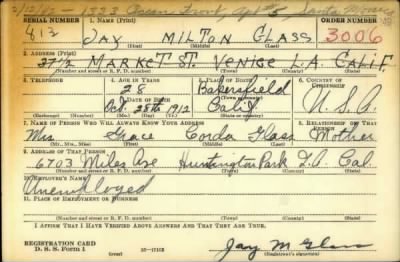 2/12/42 1323 Ocean Front Apt #5 Santa Monica
SERIAL NUMBER 1. NAME (Print) ORDER NUMBER
813 JAY MILTON GLASS 3006
(First) (Middle) (Last)
2. ADDRESS (Print)
37½ MARKET ST. VENICE L.A. CALIF.
(Number and street or R. F. D. number) (Town) (County) (State)
3. TELEPHONE 4. AGE IN YEARS 5. PLACE OF BIRTH 6. COUNTRY OF CITIZENSHIP
28 Bakersfield
DATE OF BIRTH (Town or county)
Oct. 28th 1912 Calif U.S.A.
(Exchange) (Number) (Mo.) (Day) (Yr.) (State or country)
7. NAME OF PERSON WHO WILL ALWAYS KNOW YOUR ADDRESS 8. RELATIONSHIP OF THAT PERSON
Mrs Grace Corda Glass Mother
(Mr., Mrs., Miss) (First) (Middle) (Last)
9. ADDRESS OF THAT PERSON
6703 Miles Ave Huntington Park L.A. Cal.
(Number and street or R. F. D. number) (Town) (County) (State)
10. EMPLOYER'S NAME
Unemployed
11. PLACE OF EMPLOYMENT OR BUSINESS
(Number and street or R. F. D. number) (Town) (County) (State)
I AFFIRM THAT I HAVE VERIFIED ABOVE ANSWERS AND THAT THEY ARE TRUE.
REGISTRATION CARD
D. S. S. Form 1 Jay M Glass
(Registrant's signature)